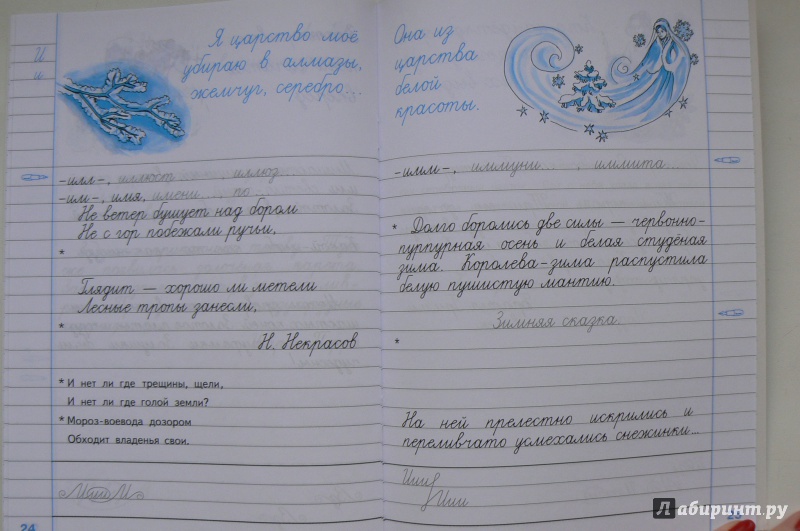 И
и
Я царство моё
убираю в алмазы,
жемчуг, серебро...
-илл-, иллюст..., ..., иллюз...
-им-, имя, имени..., по...
Не ветер бушует над бором
Не с гор побежали ручьи,
*
Глядит — хорошо ли метели
Лесные тропы занесли,
*
Н. Некрасов
* И нет ли где трещины, щели,
И нет ли где голой земли?
* Мороз-воевода дозором
Обходит владенья свои.
24
Она из
царства
белой
красоты.
-имм-, иммуни..., иммита...
* Долго боролись две силы — червонно-
пурпурная осень и белая студёная
зима. Королева-зима распустила
белую пушистую мантию.
Зимняя сказка.
*
На ней прелестно искрились и
переливчато усмехались снежинки...
25
Лабиринт.ру